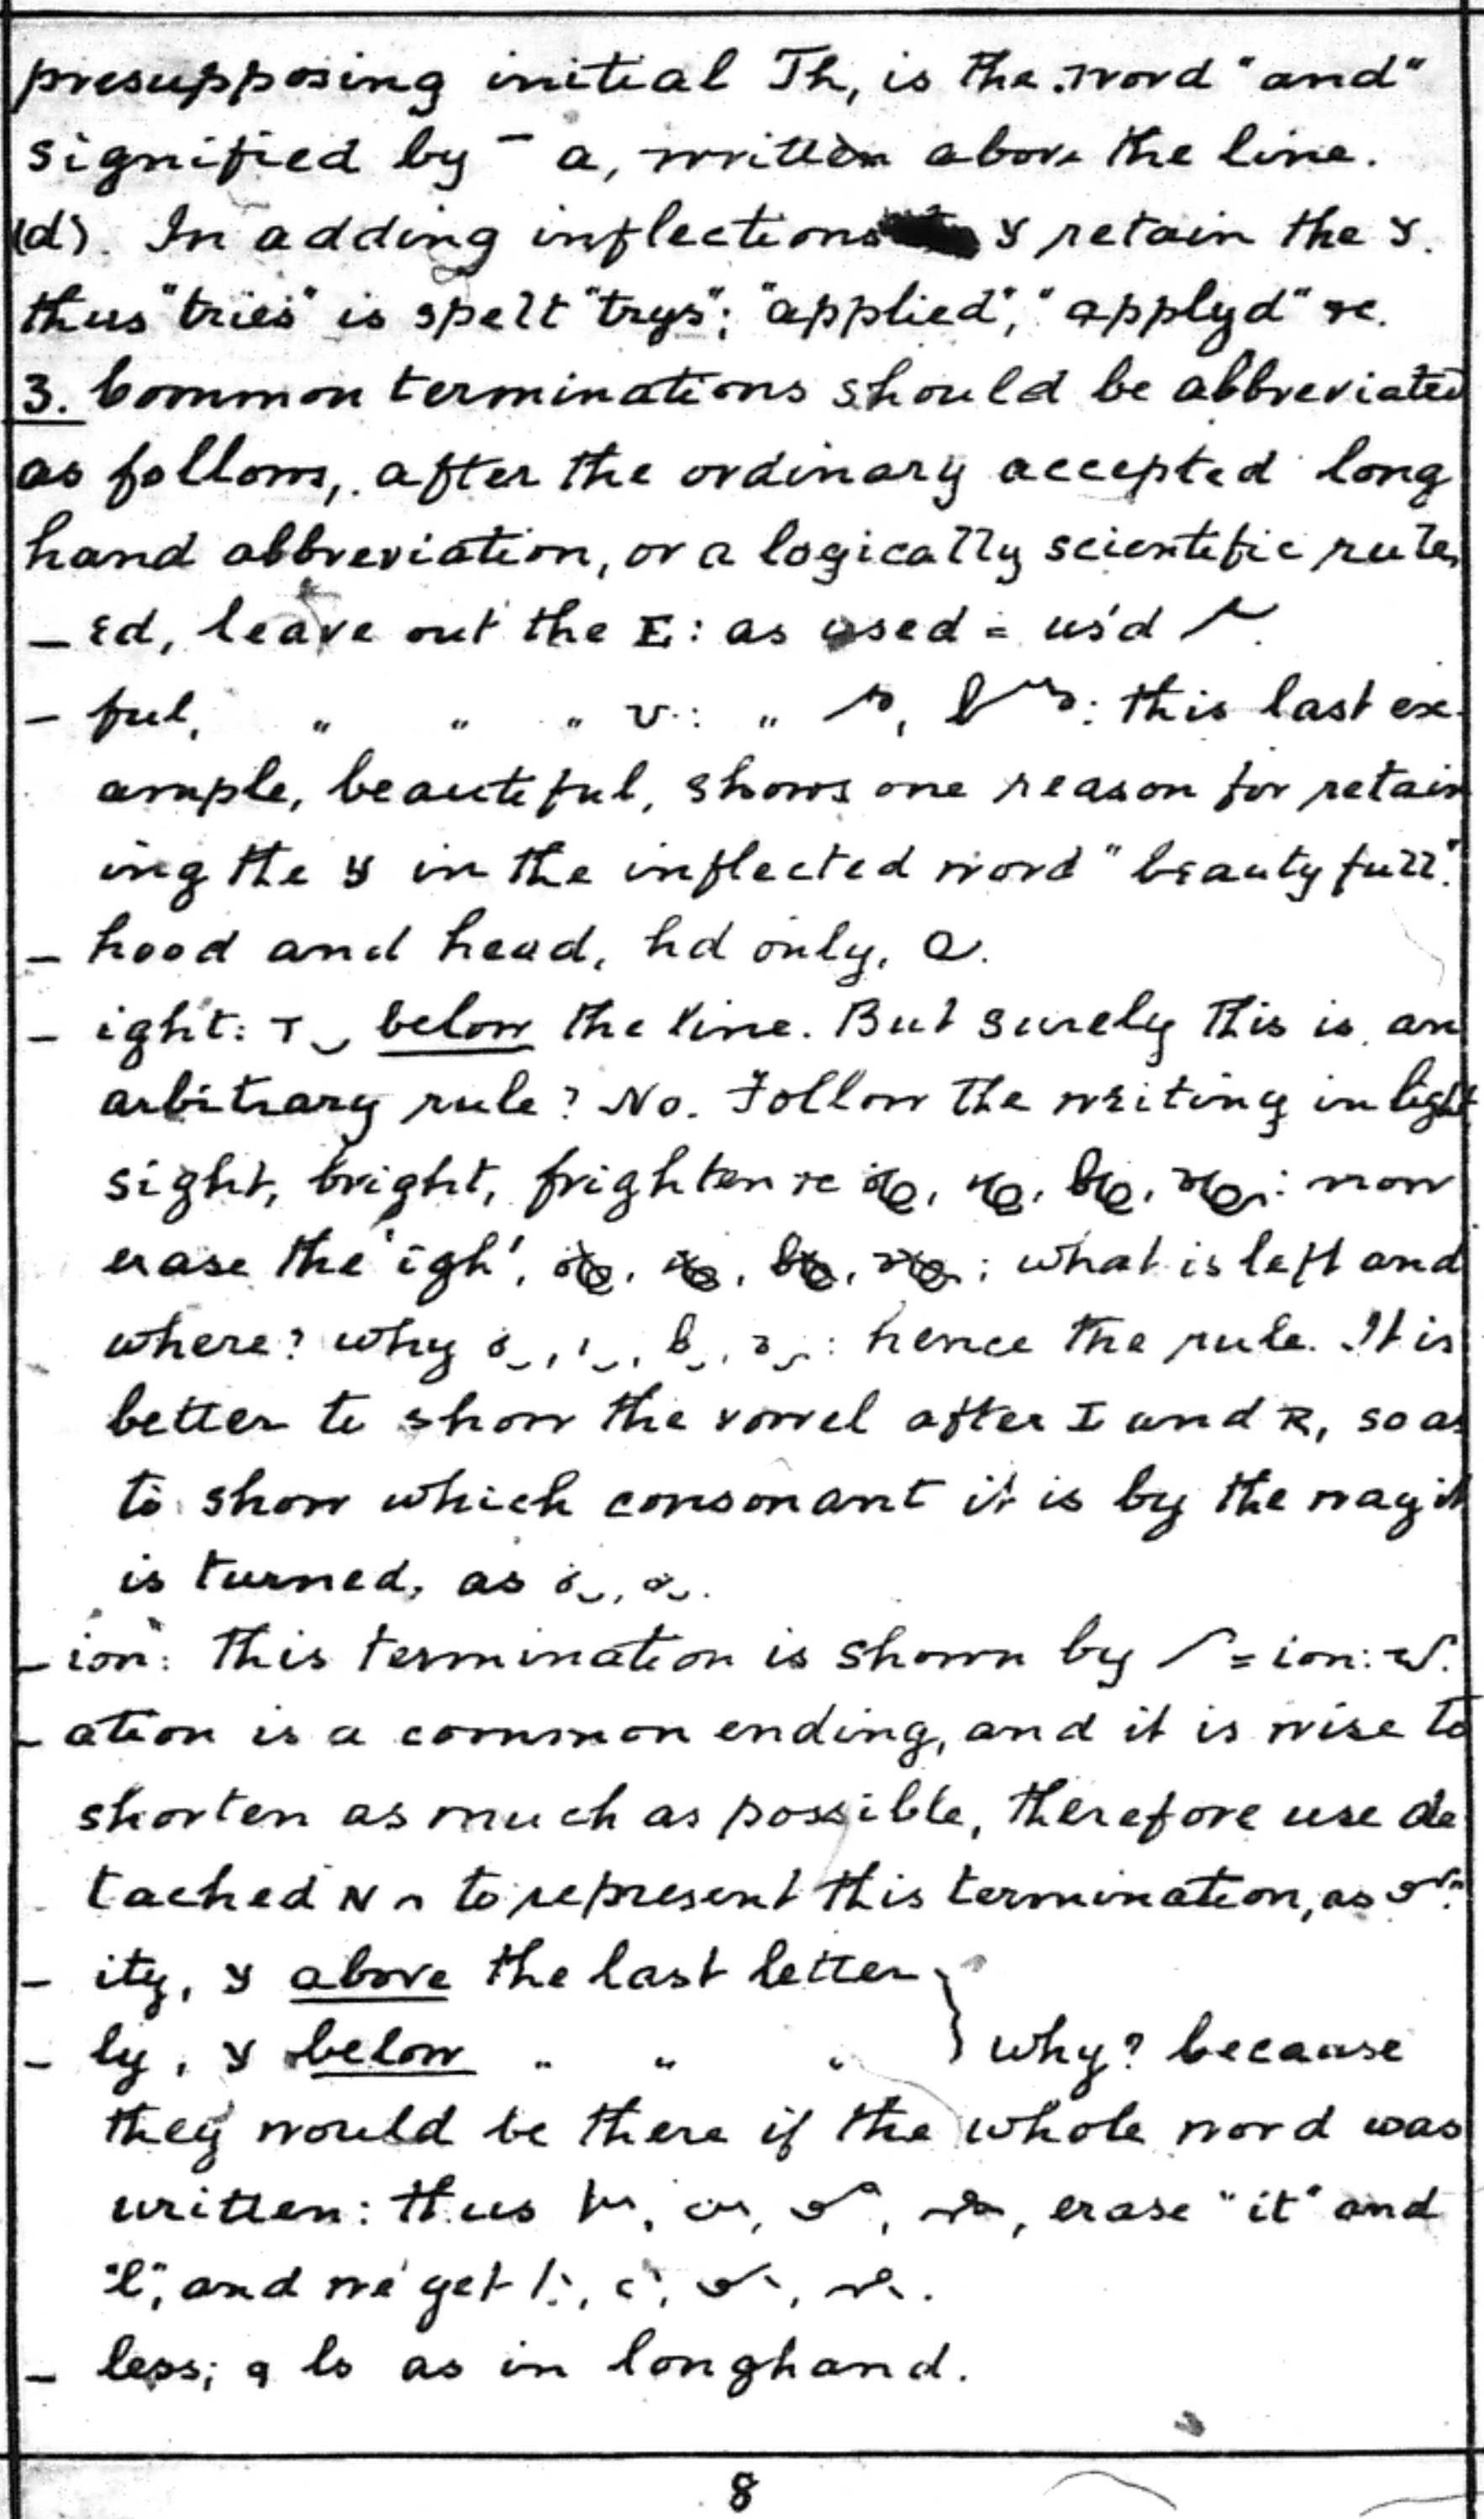 presupposing initial Th, is the word "and"
signified by – a, written above the line.
(d). In adding inflections y retain the y.
thus "tries" is spelt "trys"; "applied", "applyd" &c.
3. Common terminations should be abbreviated
as follows, after the ordinary accepted long
hand abbreviation, or a logically scientific rule,
– Ed, leave out the E: as used = us'd
– ful, " " " U: " , : this last ex-
ample, beautiful, shows one reason for retain
ing the y in the inflected word "beautyfull".
– hood and head, hd only,
– ight: T below the line. But surely this is an
arbitrary rule? No. Follow the writing in light
sight, bright, frighten &c : now
erase the 'igh', : what is left and
where? why : hence the rule. It is
better to show the vowel after I and R, so as
to show which consonant it is by the way it
is turned, as
– ion: this termination is shown by = ion:
– ation is a common ending, and it is wise to
shorten as much as possible, therefore use de
tached N to represent this termination, as
– ity, y above the last letter
– ly, y below " " " } why? because
they would be there if the whole word was
written: thus , erase "it" and
"l", and we get
– less; ls as in longhand.
8